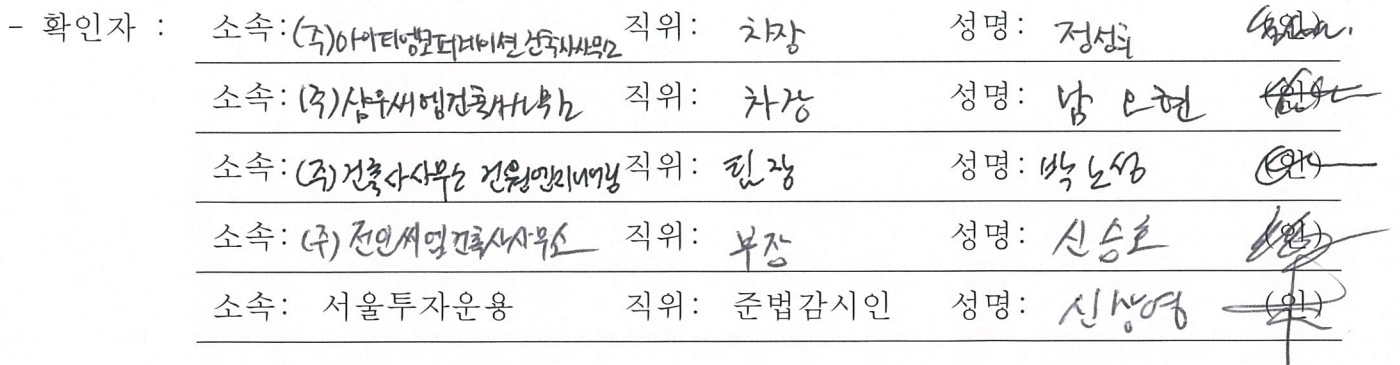 - 확인자 : 소속: (주)아이티엠코퍼레이션건축사사무소 직위: 차장 성명: 정성희
소속: (주)삼우씨엠건축사사무소 직위: 차장 성명: 남오현 (인)
소속: (주)건축사사무소 건원엔지니어링 직위: 팀장 성명: 박노성 (인)
소속: (주)전인씨엠건축사사무소 직위: 부장 성명: 신승호 (인)
소속: 서울투자운용 직위: 준법감시인 성명: 신상영 (인)